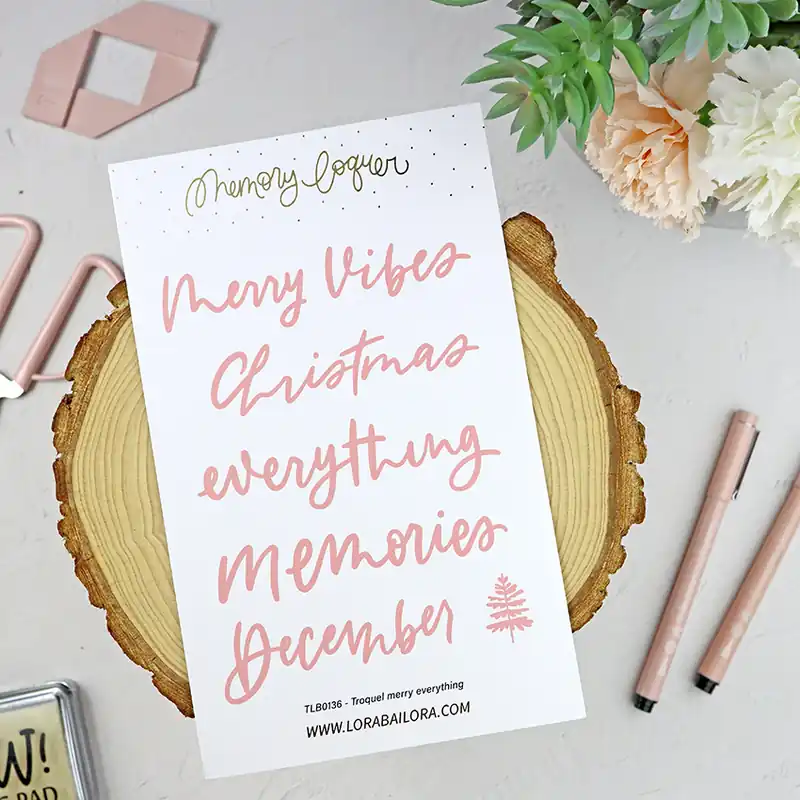 memory loquer
Merry Vibes
Christmas
everything
memories
December
TLB0136 - Troquel merry everything
WWW.LORABAILORA.COM
W!
PAD